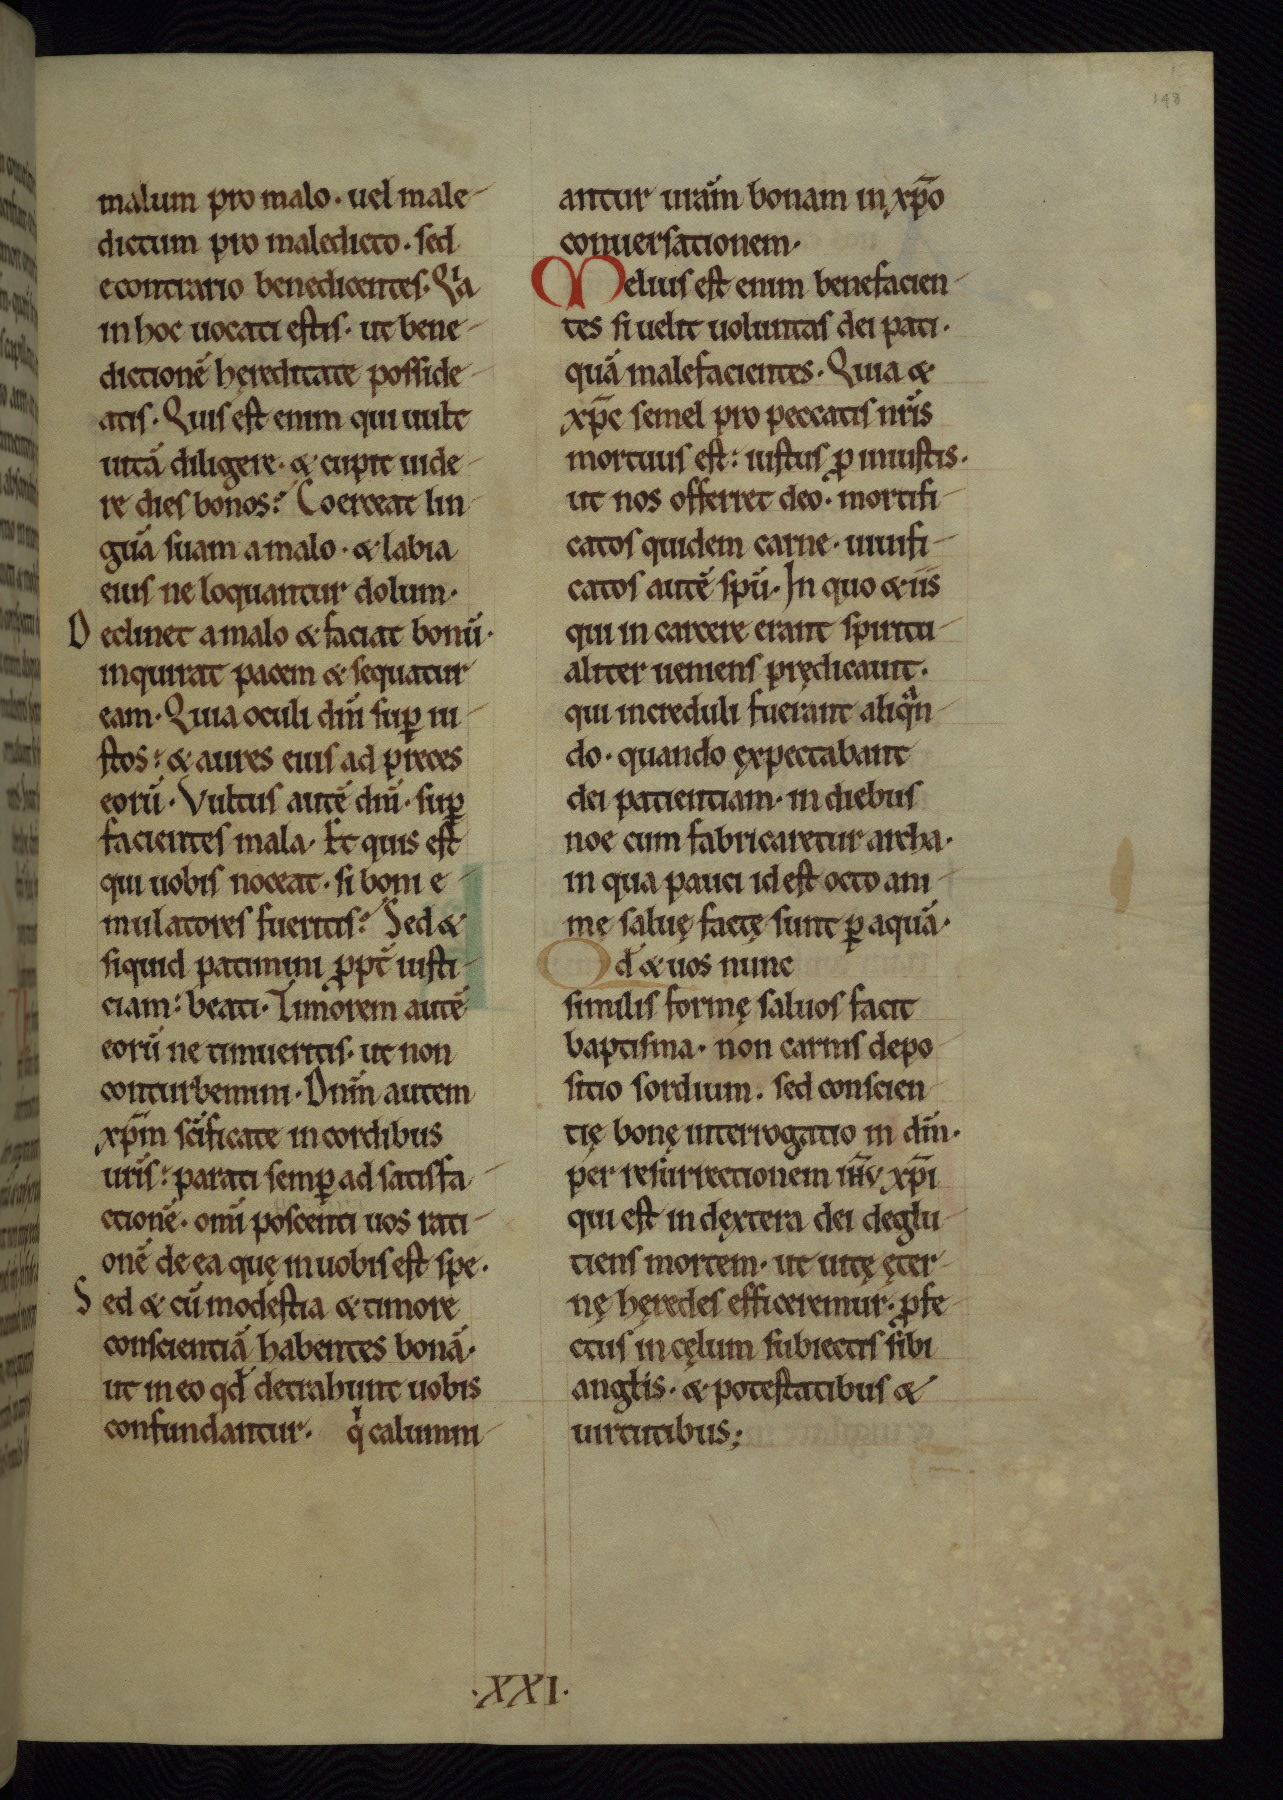 148
malum pro malo· uel male-
dictum pro maledicto· sed
econtrario benedicentes· Qia
in hoc uocati estis· ut bene-
dictionē hęreditate posside-
atis· Quis est enim qui uult
uitā diligere· & cupit uide-
re dies bonos? Coerceat lin-
guā suam a malo· & labia
eius ne loquantur dolum·
Declinet a malo & faciat bonū·
inquirat pacem & sequatur
eam· Quia oculi dn̄i sup̄ iu-
stos: & aures eius ad preces
eorū· Vultus autē dn̄i· sup̄
facientes mala· Et quis est
qui uobis noceat· si boni e-
mulatores fueritis? Sed &
siquid patimini ꝓpt̄ iusti-
ciam: beati· Timorem autē
eorū ne timueritis· ut non
conturbemini· Dn̄m autem
xp̄m sc̄ificate in cordibus
ur̄is: parati semp̄ ad satisfa-
ctionē· om̄i poscenti uos rati-
onē de ea quę in uobis est spe·
Sed & cū modestia & timore
conscientiā habentes bonā·
ut in eo qđ detrahunt uobis
confundantur· qi calumni-
antur uram̄ bonam in xp̄o
conuersationem·
Melius est enim benefacien-
tes si uelit uoluntas dei pati·
quā malefacientes· Quia &
xp̄c semel pro peccatis nr̄is
mortuus est: iustus ꝑ iniustis·
ut nos offerret deo· mortifi-
catos quidem carne· uiuifi-
catos autē spū· In quo & iis
qui in carcere erant spiritu-
aliter ueniens prędicauit·
qui increduli fuerant aliqan-
do· quando ęxpectabant
dei patientiam· in diebus
noe cum fabricaretur archa·
in qua pauci id est octo ani-
me saluę factę sunt ꝑ aquā·
Qđ & uos nunc
similis formę saluos facit
baptisma· non carnis depo-
sitio sordium· sed conscien-
tię bonę interrogatio in dm̄·
per resurrectionem ih̄v xp̄i
qui est in dęxtera dei deglu-
tiens mortem· ut uitę ęter-
nę hęredes efficeremur· ꝓfe-
ctus in cęlum subiectis sibi
angłis· & potestatibus &
uirtutibus;
·XXI·